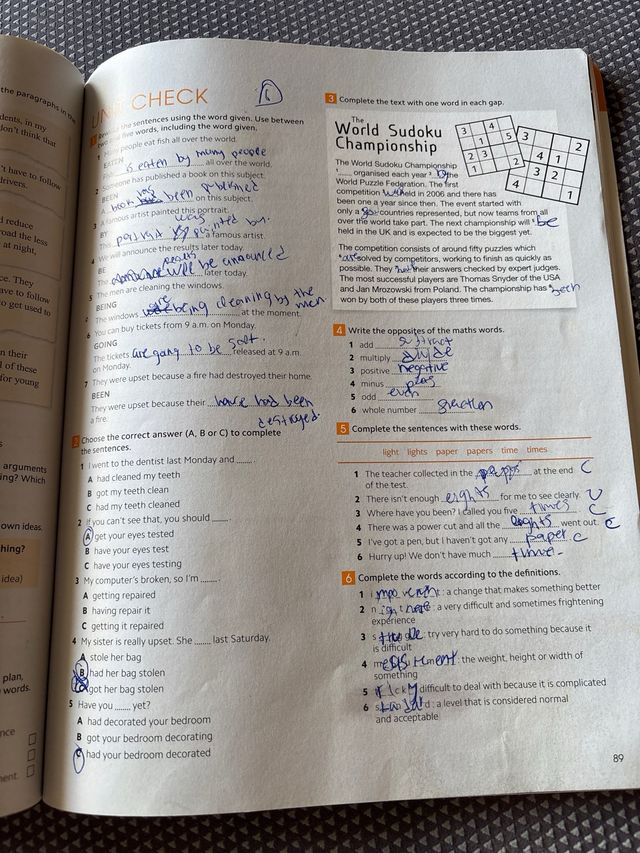 the paragraphs in the
dents, in my
don't think that
't have to follow
drivers.
d reduce
road the less
at night,
ce. They
ave to follow
to get used to
n their
l of these
for young
s
arguments
ing? Which
own ideas.
hing?
idea)
plan,
words.
nce
ment.
UNIT CHECK
the sentences using the word given. Use between
five words, including the word given.
people eat fish all over the world.
EATEN
is eaten by many people all over the world.
2 Someone has published a book on this subject.
BEEN
A book has been published on this subject.
3 A famous artist painted this portrait.
BY
This portrait was painted by a famous artist.
4 We will announce the results later today.
BE
The will be announced later today.
5 The men are cleaning the windows.
BEING
The windows are being cleaning by the men at the moment.
6 You can buy tickets from 9 a.m. on Monday.
GOING
The tickets are gang to be released at 9 a.m.
on Monday.
7 They were upset because a fire had destroyed their home.
BEEN
They were upset because their have had been destroyed.
a fire.
2 Choose the correct answer (A, B or C) to complete
the sentences.
1 I went to the dentist last Monday and .......
A had cleaned my teeth
B got my teeth clean
C had my teeth cleaned
2 If you can't see that, you should ......
A get your eyes tested
B have your eyes test
C have your eyes testing
3 My computer's broken, so I'm .......
A getting repaired
B having repair it
C getting it repaired
4 My sister is really upset. She ....... last Saturday.
A stole her bag
B had her bag stolen
C got her bag stolen
5 Have you ....... yet?
A had decorated your bedroom
B got your bedroom decorating
C had your bedroom decorated
3 Complete the text with one word in each gap.
The
World Sudoku
Championship
The World Sudoku Championship
1 organised each year 2 by the
World Puzzle Federation. The first
competition held in 2006 and there has
been one a year since then. The event started with
only a few countries represented, but now teams from all
over the world take part. The next championship will be
held in the UK and is expected to be the biggest yet.
The competition consists of around fifty puzzles which
are solved by competitors, working to finish as quickly as
possible. They their answers checked by expert judges.
The most successful players are Thomas Snyder of the USA
and Jan Mrozowski from Poland. The championship has been
won by both of these players three times.
4 Write the opposites of the maths words.
1 add subtract
2 multiply divide
3 positive negative
4 minus plus
5 odd even
6 whole number
5 Complete the sentences with these words.
light lights paper papers time times
1 The teacher collected in the at the end C
of the test.
2 There isn't enough eights for me to see clearly.
3 Where have you been? I called you five times C
4 There was a power cut and all the lights went out. C
5 I've got a pen, but I haven't got any paper C
6 Hurry up! We don't have much time.
6 Complete the words according to the definitions.
1 : a change that makes something better
2 : a very difficult and sometimes frightening
experience
3 : try very hard to do something because it
is difficult
4 : the weight, height or width of
something
5 tricky difficult to deal with because it is complicated
6 : a level that is considered normal
and acceptable
89